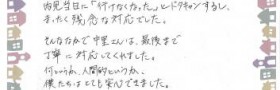 内見当日に「行けなくなった」とドタキャンするし、
まったく残念な対応でした。
そんななかで中里さんは、最後まで
丁寧に対応してくれました。
何というか、人間的というか、
僕たちはとても安心できました。